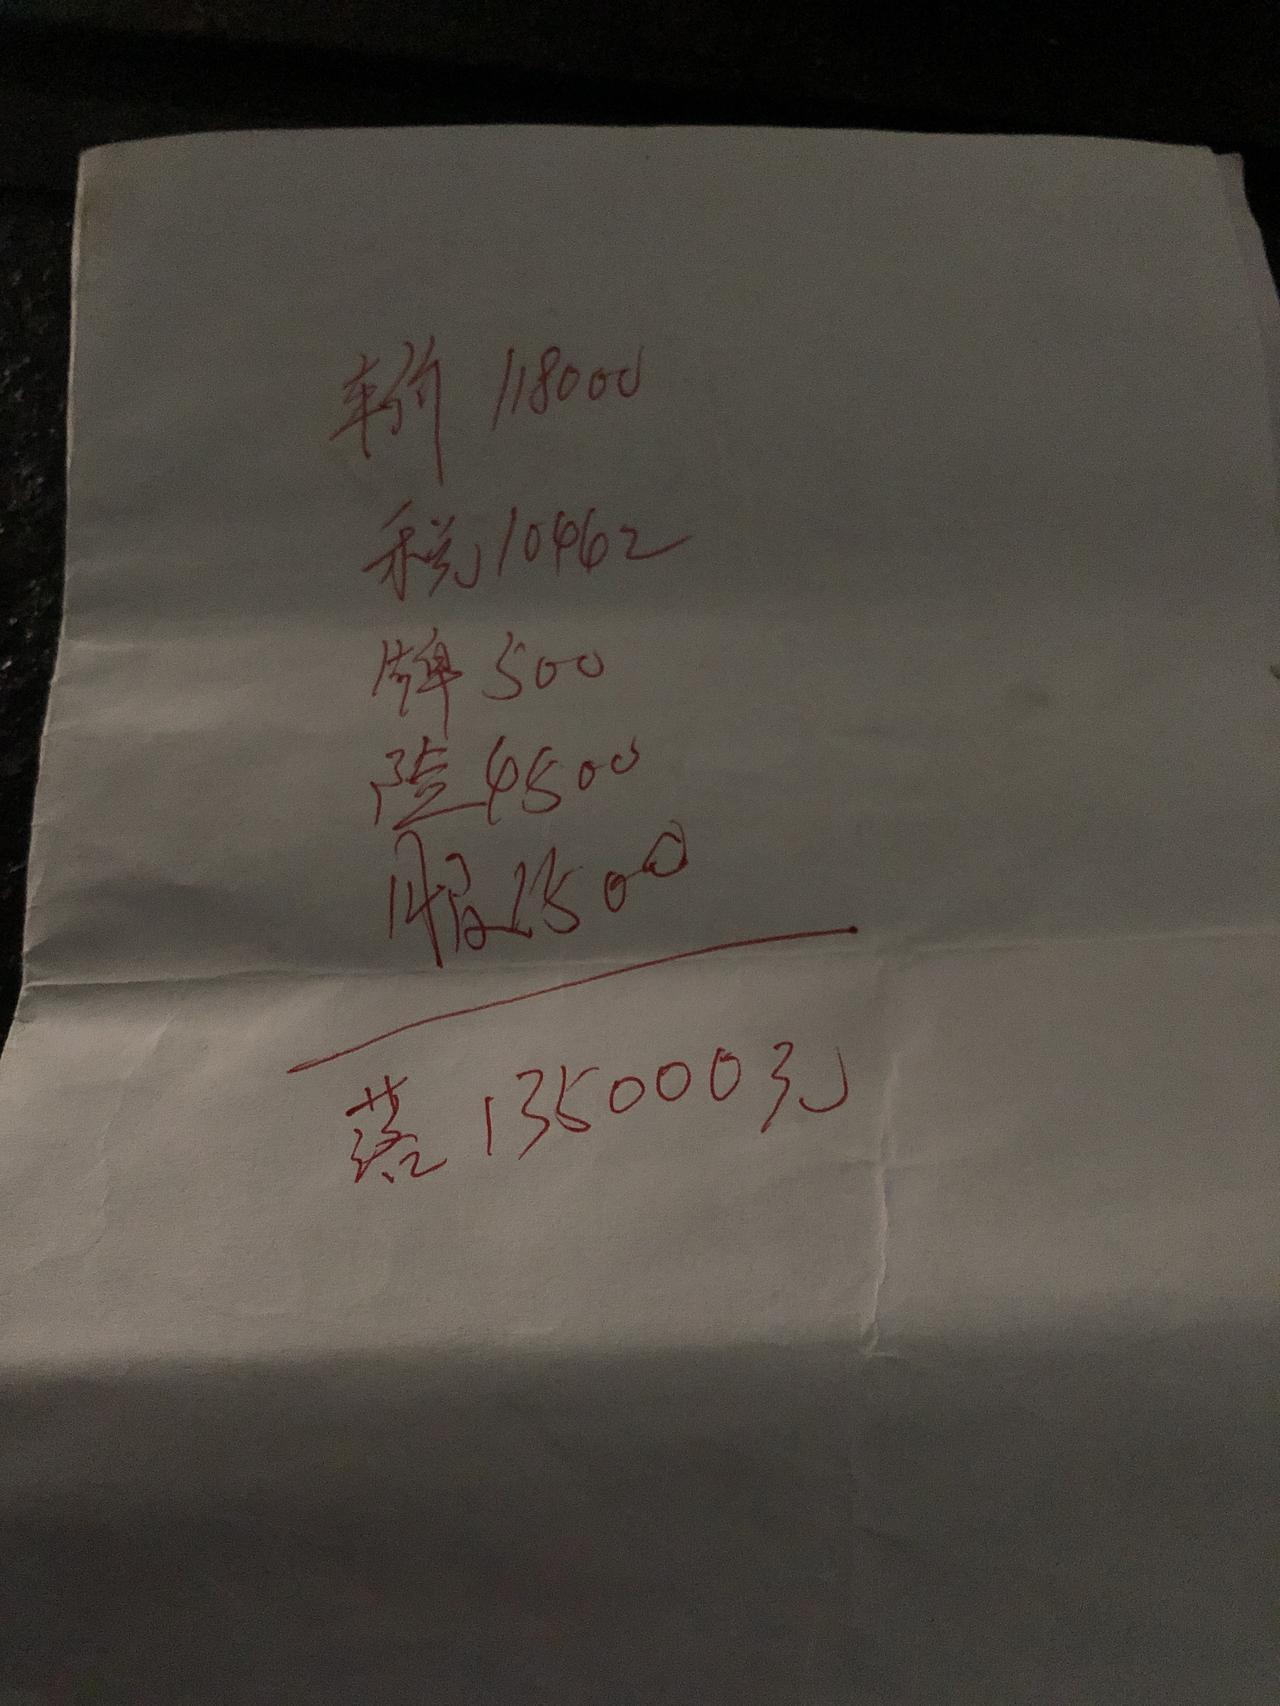 车价 118000
税 10462
牌 500
险 4500
服 1500
落 135000元